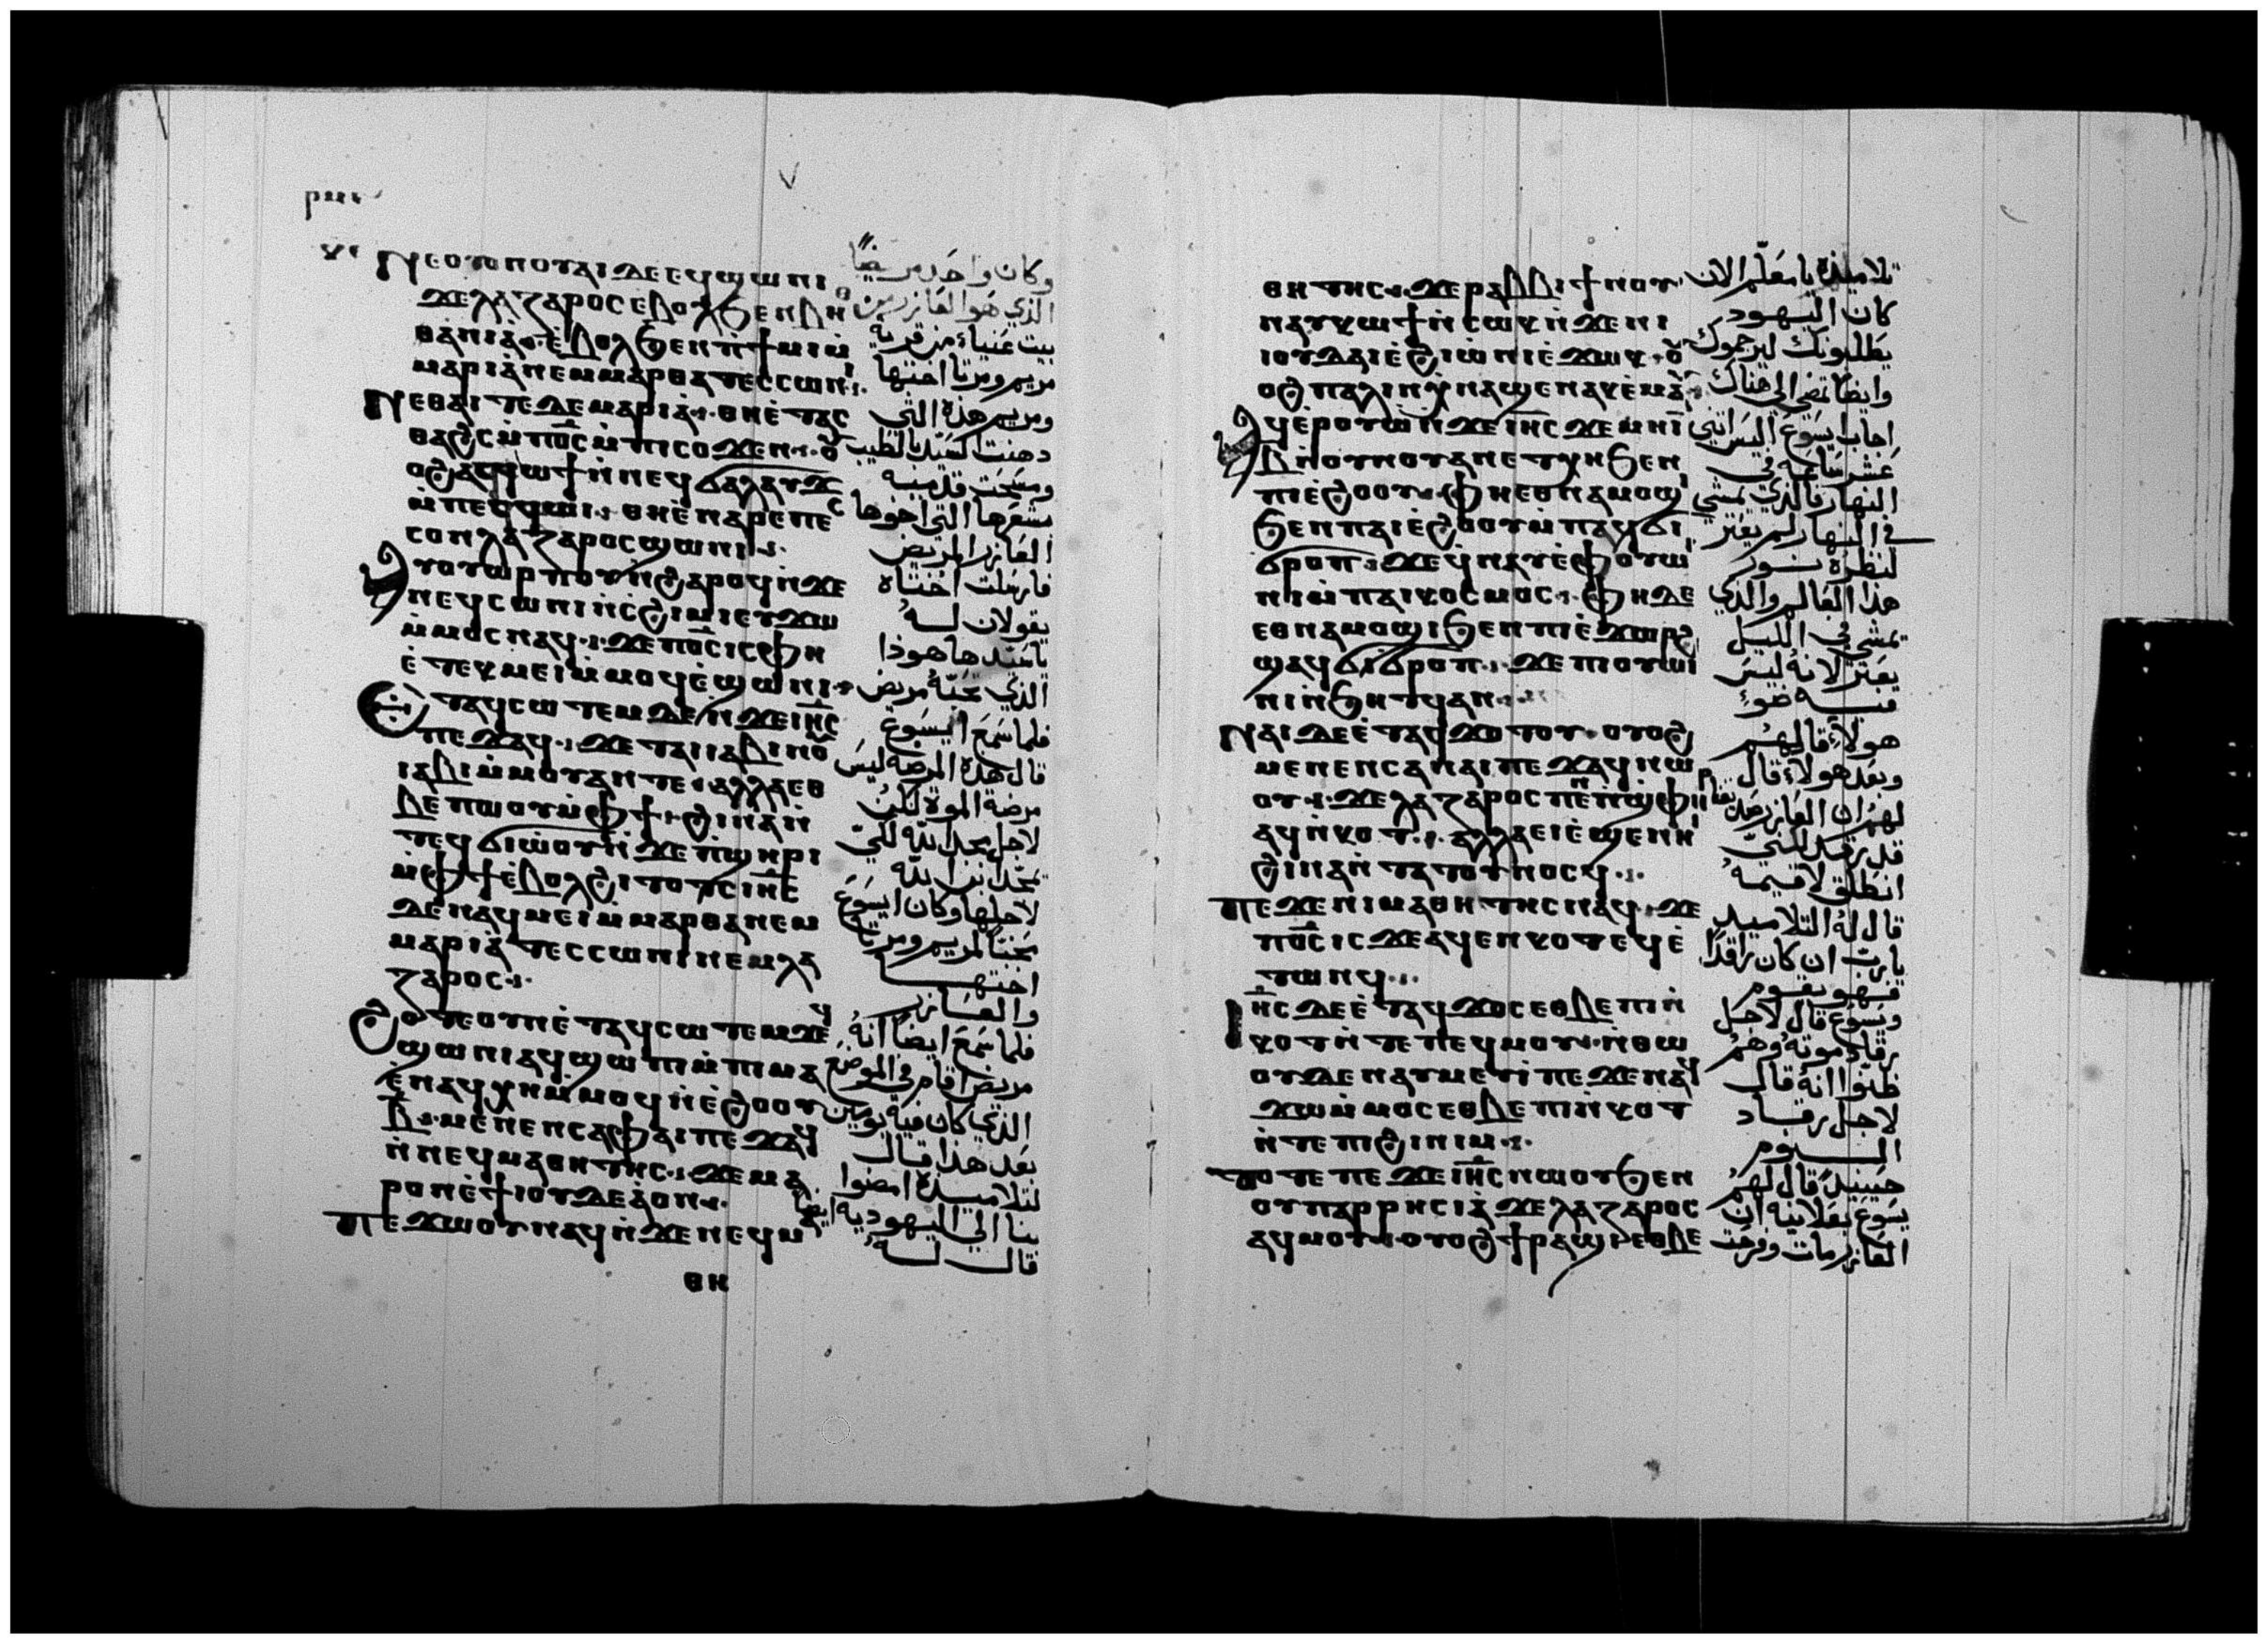 ⲚⲈⲞⲨⲞⲚⲞⲨⲀⲒⲆⲈⲈϤϢⲰⲚⲒ
ϪⲈⲖⲀⲌⲀⲢⲞⲤⲈⲂⲞⲖϦⲈⲚⲂⲎ
ⲐⲀⲚⲒⲀ̀·ⲈⲂⲞⲖϦⲈⲚⲠ̀ϮⲘⲒⲘ̀
ⲘⲀⲢⲒⲀ̀ⲚⲈⲘⲘⲀⲢⲐⲀⲦⲈⲤⲤⲰⲚⲒ
ⲚⲈⲐⲀⲒⲦⲈⲆⲈⲘⲀⲢⲒⲀ̀·ⲐⲎⲈ̀ⲦⲀⲤ
ⲐⲀϨⲤⲘ̀ⲠϬ̅Ⲥ̅Ⲙ̀ⲠⲒⲤⲞϪⲈⲚ·ⲞⲨ
ⲞϨⲀⲤϤⲰϮⲚ̀ⲚⲈϤϬⲀⲖⲀⲨϪ
Ⲙ̀ⲠⲈⲤϤⲰⲒ·ⲐⲎⲈ̀ⲚⲀⲢⲈⲠⲈⲤ
ⲤⲞⲚⲖⲀⲌⲀⲢⲞⲤϢⲰⲚⲒ·
ⲀⲨⲞⲨⲰⲢⲠⲞⲨⲚ̀ϨⲀⲢⲞϤⲚ̀ϪⲈ
ⲚⲈϤⲤⲰⲚⲒⲚ̀ⲤϨⲒⲘⲒⲈⲨϪⲰ
Ⲙ̀ⲘⲞⲤⲚⲀϤ·ϪⲈⲠϬ̅Ⲥ̅ⲒⲤⲪⲎ
Ⲉ̀ⲦⲈⲔⲘⲈⲒⲘ̀ⲘⲞϤⲈ̀ϢⲰⲚⲒ·
ⲈⲦⲀϤⲤⲰⲦⲈⲘⲆⲈⲚ̀ϪⲈⲒⲎ̅Ⲥ̅
ⲠⲈϪⲀϤ·ϪⲈⲦⲀⲒⲒⲀⲂⲒⲚⲞⲨ
ⲒⲀⲂⲒⲘ̀ⲘⲞⲨⲀⲚⲦⲈ·ⲀⲖⲖⲀⲈⲐ
ⲂⲈⲠⲰⲞⲨⲘ̀ⲪϮ·ϨⲒⲚⲀⲚ̀
ⲦⲈϤϬⲒⲰ̀ⲞⲨⲚ̀ϪⲈⲠ̀ϢⲎⲢⲒ
Ⲙ̀ⲪϮⲈ̀ⲂⲞⲖϨⲒⲦⲞⲦⲤⲒⲎ̅Ⲥ̅
ⲆⲈⲚⲀϤⲘⲈⲒⲘ̀ⲘⲀⲢⲐⲀⲚⲈⲘ
ⲘⲀⲢⲒⲀ̀ⲦⲈⲤⲤⲰⲚⲒⲚⲈⲘⲖⲀ
ⲌⲀⲢⲞⲤ·
ϨⲞⲦⲈⲞⲨⲚⲈ̀ⲦⲀϤⲤⲰⲦⲈⲘϪⲈϤ
ϢⲰⲚⲒⲀϤϢⲰⲠⲒⲘ̀ⲠⲒⲘⲀ
Ⲉ̀ⲚⲀϤⲬⲎⲘ̀ⲘⲞϤⲚ̀Ⲉ̀ϨⲞⲞⲨ
Ⲃ̅·ⲘⲈⲚⲈⲚⲤⲀⲪⲀⲒⲠⲈϪⲀϤ
Ⲛ̀ⲚⲈϤⲘⲀⲐⲎⲦⲎⲤ·ϪⲈⲘⲀ
ⲢⲞⲚⲈ̀ϮⲒⲞⲨⲆⲈⲀ̀ⲞⲚ·
ⲠⲈϪⲰⲞⲨⲚⲀϤⲚ̀ϪⲈⲚⲈϤⲘⲀ
ⲐⲎ
وكان واحد مريضاً
الذي هو العازر من
بيت عنياء من قرية
مريم ومرتا اختها
ومريم هذه التي
دهنت السيد بالطيب
ومسحت قدميه
بشعرها التي اخوها
العازر المريض
فارسلت اختاه
يقولان له
يا سيد ها هوذا
الذي تحبّه مريض
فلما سمع ايسوع
قال هذه المرضه ليس
مرضة الموت لكن
لاجل مجد الله لكي
يتمجد ابن الله
لاجلها وكان ايسوع
محباً لمريم ومرتا
اختها
والعازر
فلما سمع ايضاً انه
مريض اقام في الموضع
الذي كان فيه يومين
بعد هذا قال
لتلاميذه امضوا
بنا الي اليهودية ايضاً
قال له
ⲐⲎⲦⲎⲤ·ϪⲈⲢⲀⲂⲂⲒϮⲚⲞⲨ
ⲚⲀⲨⲔⲰϮⲚ̀ⲤⲰⲔⲚ̀ϪⲈⲚⲒ
ⲒⲞⲨⲆⲀⲒⲈ̀ϨⲒⲰ̀ⲚⲒⲈ̀ϪⲰⲔ·ⲞⲨ
ⲞϨⲠⲀⲖⲒⲚⲬ̀ⲚⲀϢⲈⲚⲀⲔⲈ̀ⲘⲀⲨ
ⲀϤⲈ̀ⲢⲞⲨⲰ̀Ⲛ̀ϪⲈⲒⲎ̅Ⲥ̅ϪⲈⲘⲎⲒ̅
Ⲃ̅Ⲛ̀ⲞⲨⲚⲞⲨⲀⲚⲈⲦⲬⲎϦⲈⲚ
ⲠⲒⲈ̀ϨⲞⲞⲨ·ⲪⲎⲈⲐⲚⲀⲘⲞϢⲒ
ϦⲈⲚⲠⲒⲈ̀ϨⲞⲞⲨⲘ̀ⲠⲀϤϬⲒ
ϬⲢⲞⲠ·ϪⲈϤ̀ⲚⲀⲨⲈ̀ⲪⲞⲨⲰⲒ
ⲚⲒⲘ̀ⲠⲀⲒⲔⲞⲤⲘⲞⲤ·ⲪⲎⲆⲈ
ⲈⲐⲚⲀⲘⲞϢⲒϦⲈⲚⲠⲒⲈ̀ϪⲰⲢϨ
ϢⲀϤϬⲒϬⲢⲞⲠ·ϪⲈⲠⲒⲞⲨⲰⲒ
ⲚⲒⲚ̀ϦⲎⲦϤⲀⲚ·
ⲚⲀⲒⲆⲈⲈ̀ⲦⲀϤϪⲞⲦⲞⲨ·ⲞⲨⲞϨ
ⲘⲈⲚⲈⲚⲤⲀⲚⲀⲒⲠⲈϪⲀϤⲚⲰ
ⲞⲨ·ϪⲈⲖⲀⲌⲀⲢⲞⲤⲠⲈⲚϢ̀ⲪⲎⲢ
ⲀϤⲚ̀ⲔⲞⲦ·ⲀⲖⲖⲀⲈⲒⲈ̀ϢⲈⲚⲎⲒ
ϨⲒⲚⲀⲚ̀ⲦⲀⲦⲞⲨⲚⲞⲤϤ·
ⲠⲈϪⲈⲚⲒⲘⲀⲐⲎⲦⲎⲤⲚⲀϤ·ϪⲈ
ⲠϬ̅Ⲥ̅ⲒⲤϪⲈⲀϤⲈⲚⲔⲞⲦⲈϤⲈ̀
ⲦⲰⲚϤ·
ⲒⲎ̅Ⲥ̅ⲆⲈⲈ̀ⲦⲀϤϪⲞⲤⲈⲐⲂⲈⲠⲒⲚ̀
ⲔⲞⲦⲚ̀ⲦⲈⲠⲈϤⲘⲞⲨ·Ⲛ̀ⲐⲰ
ⲞⲨⲆⲈⲚⲀⲨⲘⲈⲨⲒⲠⲈϪⲈⲚⲀϤ
ϪⲰⲘ̀ⲘⲞⲤⲈⲐⲂⲈⲠⲒⲚ̀ⲔⲞⲦ
Ⲛ̀ⲦⲈⲠⲒϨⲒⲚⲒⲘ·
ⲦⲞⲦⲈⲠⲈϪⲈⲒⲎ̅Ⲥ̅ⲚⲰⲞⲨϦⲈⲚ
ⲞⲨⲠⲀⲢⲢⲎⲤⲒⲀ̀ϪⲈⲖⲀⲌⲀⲢⲞⲤ
ⲀϤⲘⲞⲨ·ⲞⲨⲞϨϮⲢⲀϢⲒⲈⲐⲂⲈ
تلاميذه يا معلّم الان
كان اليهود
يطلبونك ليرجموك
وايضاً تمضي الي هناك
اجاب ايسوع اليس اثني
عشر ساعه في
النهار فالذي يمشي
في النهار لم يعثر
لنظره نور
هذا العالم والذي
يمشي في الليل
يعثر لانه ليس
فيه ضوءٍ
هولاءِ قالهم
وبعد هولاء قال
لهم ان العازر حبيبنا
قد رقد لكني
انطلق لاقيمه
قال له التلاميذ
يا ربّ ان كان راقداً
فهو يقوم
ويسوع قال لاجل
رقاد موته وهم
ظنوا انه قال
لاجل رقاد
النوم
حينيذٍ قال لهم
يسوع بعلانية ان
العازر مات وفرحت